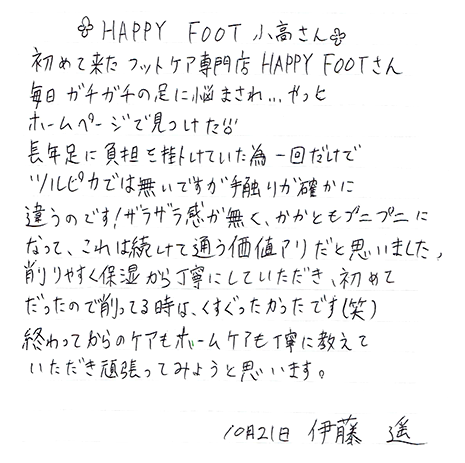 HAPPY FOOT 小高さん
初めて来たフットケア専門店 HAPPY FOOTさん
毎日ガチガチの足に悩まされ... やっと
ホームページで見つけた!!
長年足に負担を掛けていた為一回だけで
ツルピカでは無いですが手触りが確かに
違うのです!ザラザラ感が無く、かかともプニプニに
なって、これは続けて通う価値アリだと思いました。
削りやすく保湿から丁寧にしていただき、初めて
だったので削ってる時は、くすぐったかったです(笑)
終わってからのケアもホームケアも丁寧に教えて
いただき頑張ってみようと思います。
10月21日 伊藤 遥